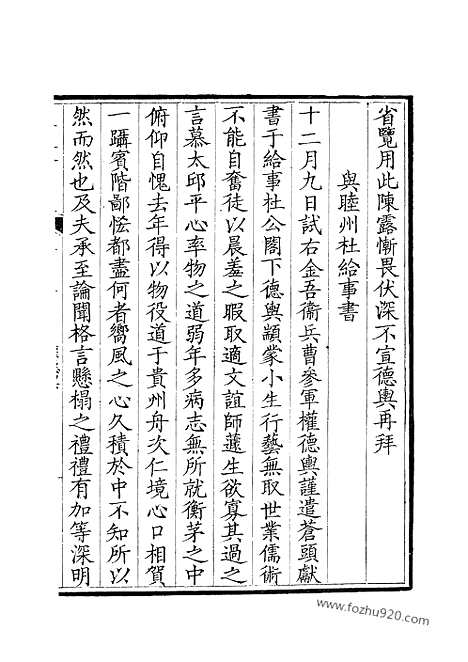 省覽用此陳露慚畏伏深不宣德輿再拜
與睦州杜給事書
十二月九日試右金吾衞兵曹參軍權德輿謹遣蒼頭獻
書于給事杜公閣下德輿顓蒙小生行藝無取世業儒術
不能自奮徒以晨羞之暇取適文誼師蘧生欲寡其過之
言慕太邱平心率物之道弱年多病志無所就衡茅之中
俯仰自愧去年得以物役道于貴州舟次仁境心口相賀
一躡賓階鄙恡都盡何者嚮風之心久積於中不知所以
然而然也及夫承至論聞格言懸榻之禮禮有加等深明
www.fozhu920.com